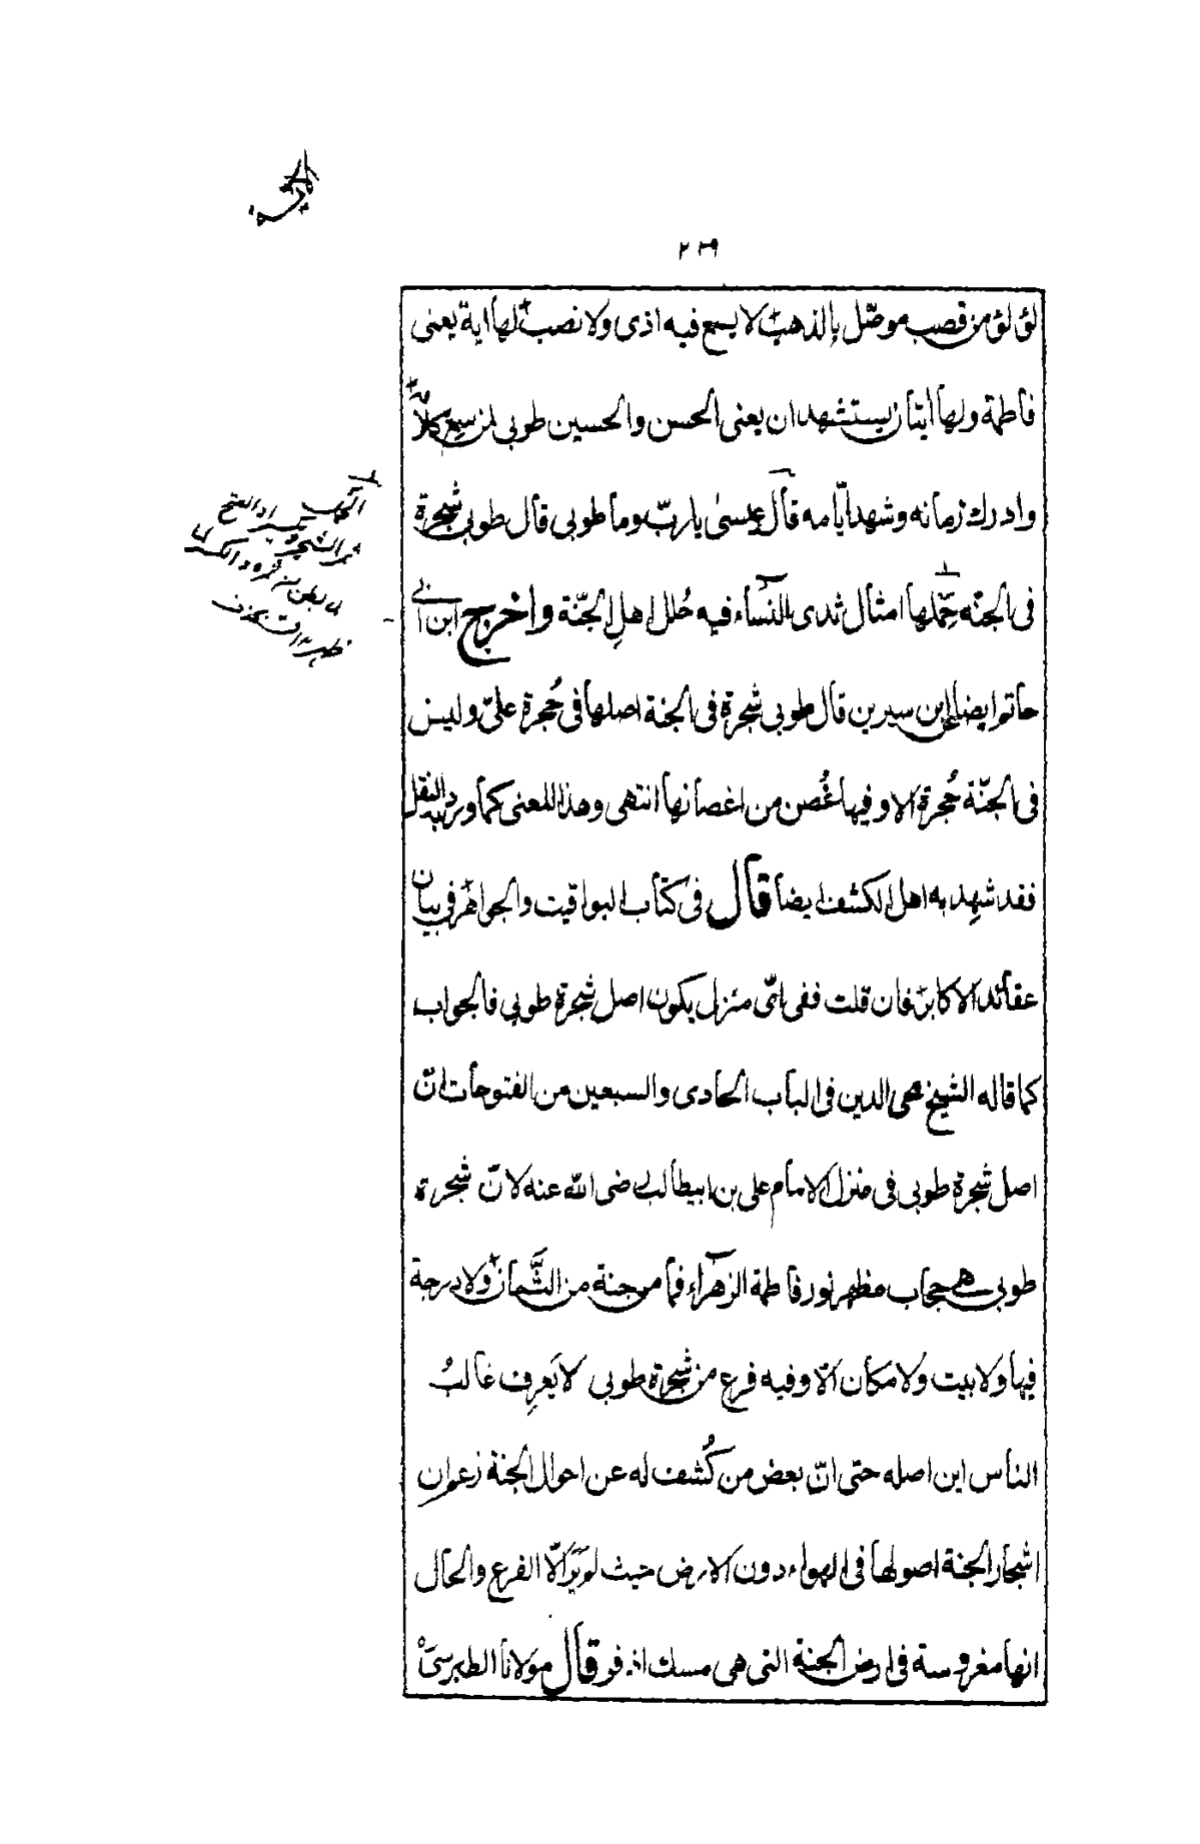 ٢٣٩
لؤلؤ من قصب موصّل بالذهب لا يسمع فيه اذى ولا نصب لها اية يعنى
فاطمة ولها ابنان يستشهدان يعنى الحسن والحسين طوبى لمن سمع كلامه
وادرك زمانه وشهد ايّامه قال عيسىٰ يا ربّ وما طوبى قال طوبى شجرة
فى الجنّه حِملها امثال ثدى النسآء فيه حُلل اهلِ الجنّة واخرج ابن ابى
حاتم ايضا عن ابن سيرين قال طوبى شجرة فى الجنة اصلها فى حُجرة علىّ وليس
فى الجنّة حُجرة الا وفيها غُصن من اغصانها انتهى وهذا المعنى كما ورد به النقل
فقد شهِد به اهل الكشف ايضا قال فى كتاب اليواقيت والجواهر فى بيان
عقائد الاكابر فان قلت ففى اىّ منزل يكون اصل شجرة طوبى فالجواب
كما قاله الشيخ محى الدين فى الباب الحادى والسبعين من الفتوحات انّ
اصل شجرة طوبى فى منزل الامام على بن ابيطالب رضى اللّه عنه لانّ شجرة
طوبى حجاب مظهر نور فاطمة الزهرآء فما من جنة من الثَّمان ولا درجة
فيها ولا بيت ولا مكان الّا وفيه فرع من شجرة طوبى لا يَعرِف غالبُ
الناس اين اصله حتى انّ بعض من كُشف له عن احوال الجنة زعم ان
اشجار الجنة اصولها فى الهواء دون الارض حيث لم يَرَ الّا الفرع والحال
انها مغروسة فى ارض الجنة التى هى مسك اذفر قال مولانا الطبرسىّ